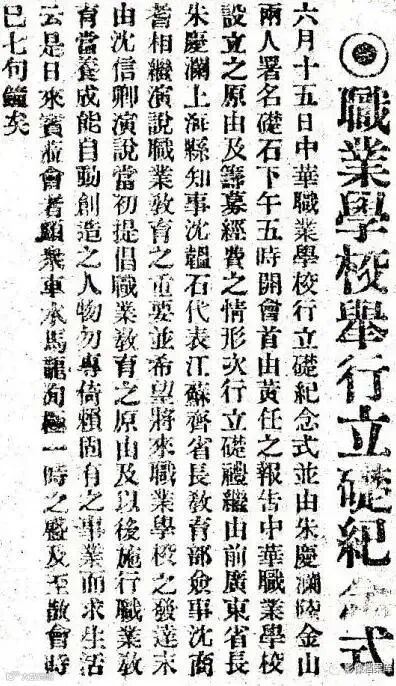 ◉職業學校舉行立礎紀念式
六月十五日中華職業學校行立礎紀念式並由朱慶瀾陸金山
兩人署名礎石下午五時開會首由黃任之報吿中華職業學校
設立之原由及籌募經費之情形次行立礎禮繼由前廣東省長
朱慶瀾上海縣知事沈韞石代表江蘇齊省長敎育部僉事沈商
耆相繼演說職業敎育之重要並希望將來職業學校之發達末
由沈信卿演說當初提倡職業敎育之原由及以後施行職業敎
育當養成能自動創造之人物勿專倚賴固有之事業而求生活
云是日來賓蒞會者頗衆車水馬龍洵極一時之盛及至散會時
已七句鐘矣